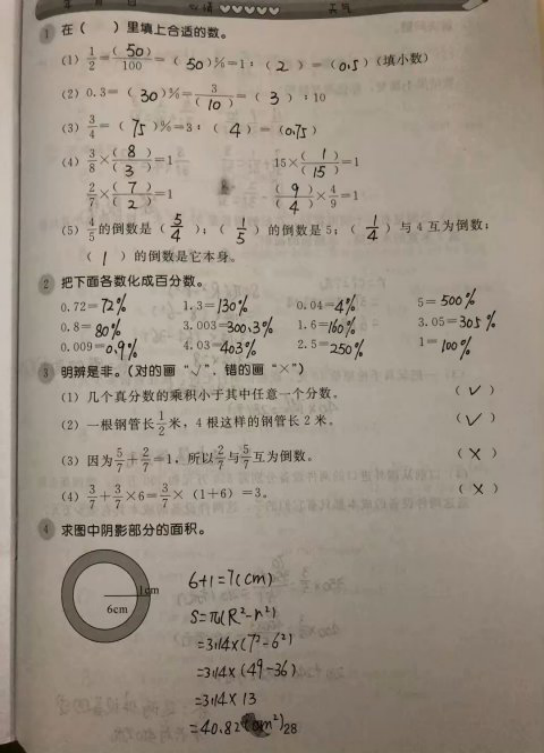 年 月 日 心情 天气
1 在（ ）里填上合适的数。
(1) 1/2=(50)/100=(50)%=1：(2)=(0.5)（填小数）
(2) 0.3=(30)%=3/(10)=(3)：10
(3) 3/4=(75)%=3：(4)=(0.75)
(4) 3/8×(8)/(3)=1 15×(1)/(15)=1
2/7×(7)/(2)=1 (9)/(4)×4/9=1
(5) 4/5的倒数是(5/4)；(1/5)的倒数是5；(1/4)与4互为倒数；
(1)的倒数是它本身。
2 把下面各数化成百分数。
0.72=72% 1.3=130% 0.04=4% 5=500%
0.8=80% 3.003=300.3% 1.6=160% 3.05=305%
0.009=0.9% 4.03=403% 2.5=250% 1=100%
3 明辨是非。（对的画“√”，错的画“×”）
(1) 几个真分数的乘积小于其中任意一个分数。 (√)
(2) 一根钢管长1/2米，4根这样的钢管长2米。 (√)
(3) 因为5/7+2/7=1，所以2/7与5/7互为倒数。 (×)
(4) 3/7+3/7×6=3/7×(1+6)=3。 (×)
4 求图中阴影部分的面积。
1cm
6cm
6+1=7(cm)
S=π(R²-r²)
=3.14×(7²-6²)
=3.14×(49-36)
=3.14×13
=40.82(cm²)
28